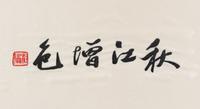 秋江增色